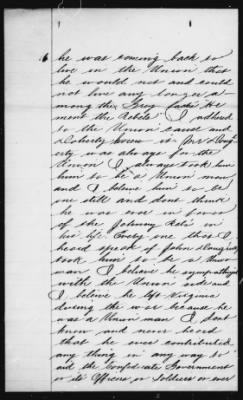 he was coming back to
live in the Union that
he would not and could
not live any longer a-
mong the Grey backs He
meant the Rebels I adhered
to the Union cause and
was always for the
Union I always took him
him to be a Union man
and I believe him to be
one still and dont think
he was ever in favor
of the Johnny Rebs in
his life Every one that I
heard speak of John
took him to be a Union
man I believe he sympathized
with the Union side and
I believe he left Virginia
during the war because he
was a Union man I dont
know and never heard
that he ever contributed
any thing in any way to
aid the Confederate Government
or its Officers or Soldiers or ever